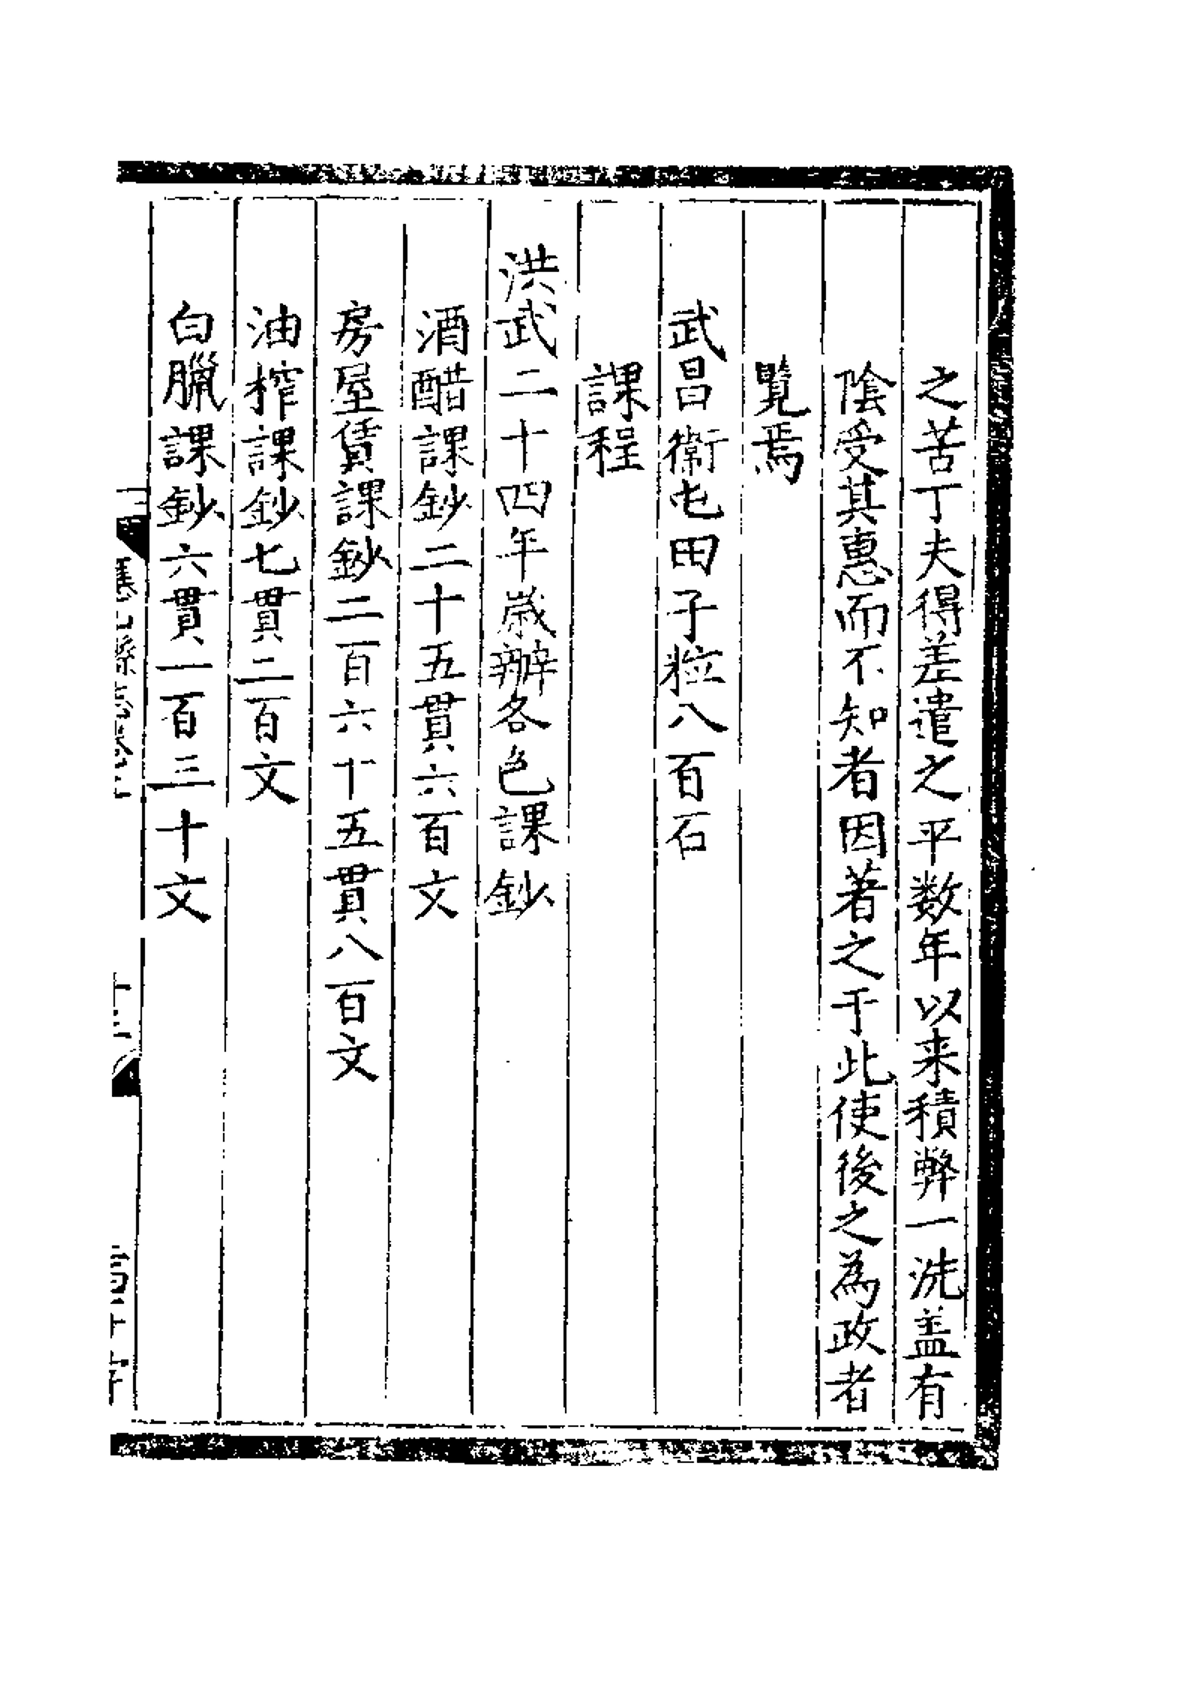 之苦丁夫得差遣之平数年以来積弊一洗盖有
陰受其惠而不知者因著之于此使後之為政者
覽焉
武昌衛屯田子粒八百石
課程
洪武二十四年歲辦各色課鈔
酒醋課鈔二十五貫六百文
房屋賃課鈔二百六十五貫八百文
油榨課鈔七貫二百文
白臘課鈔六貫一百三十文